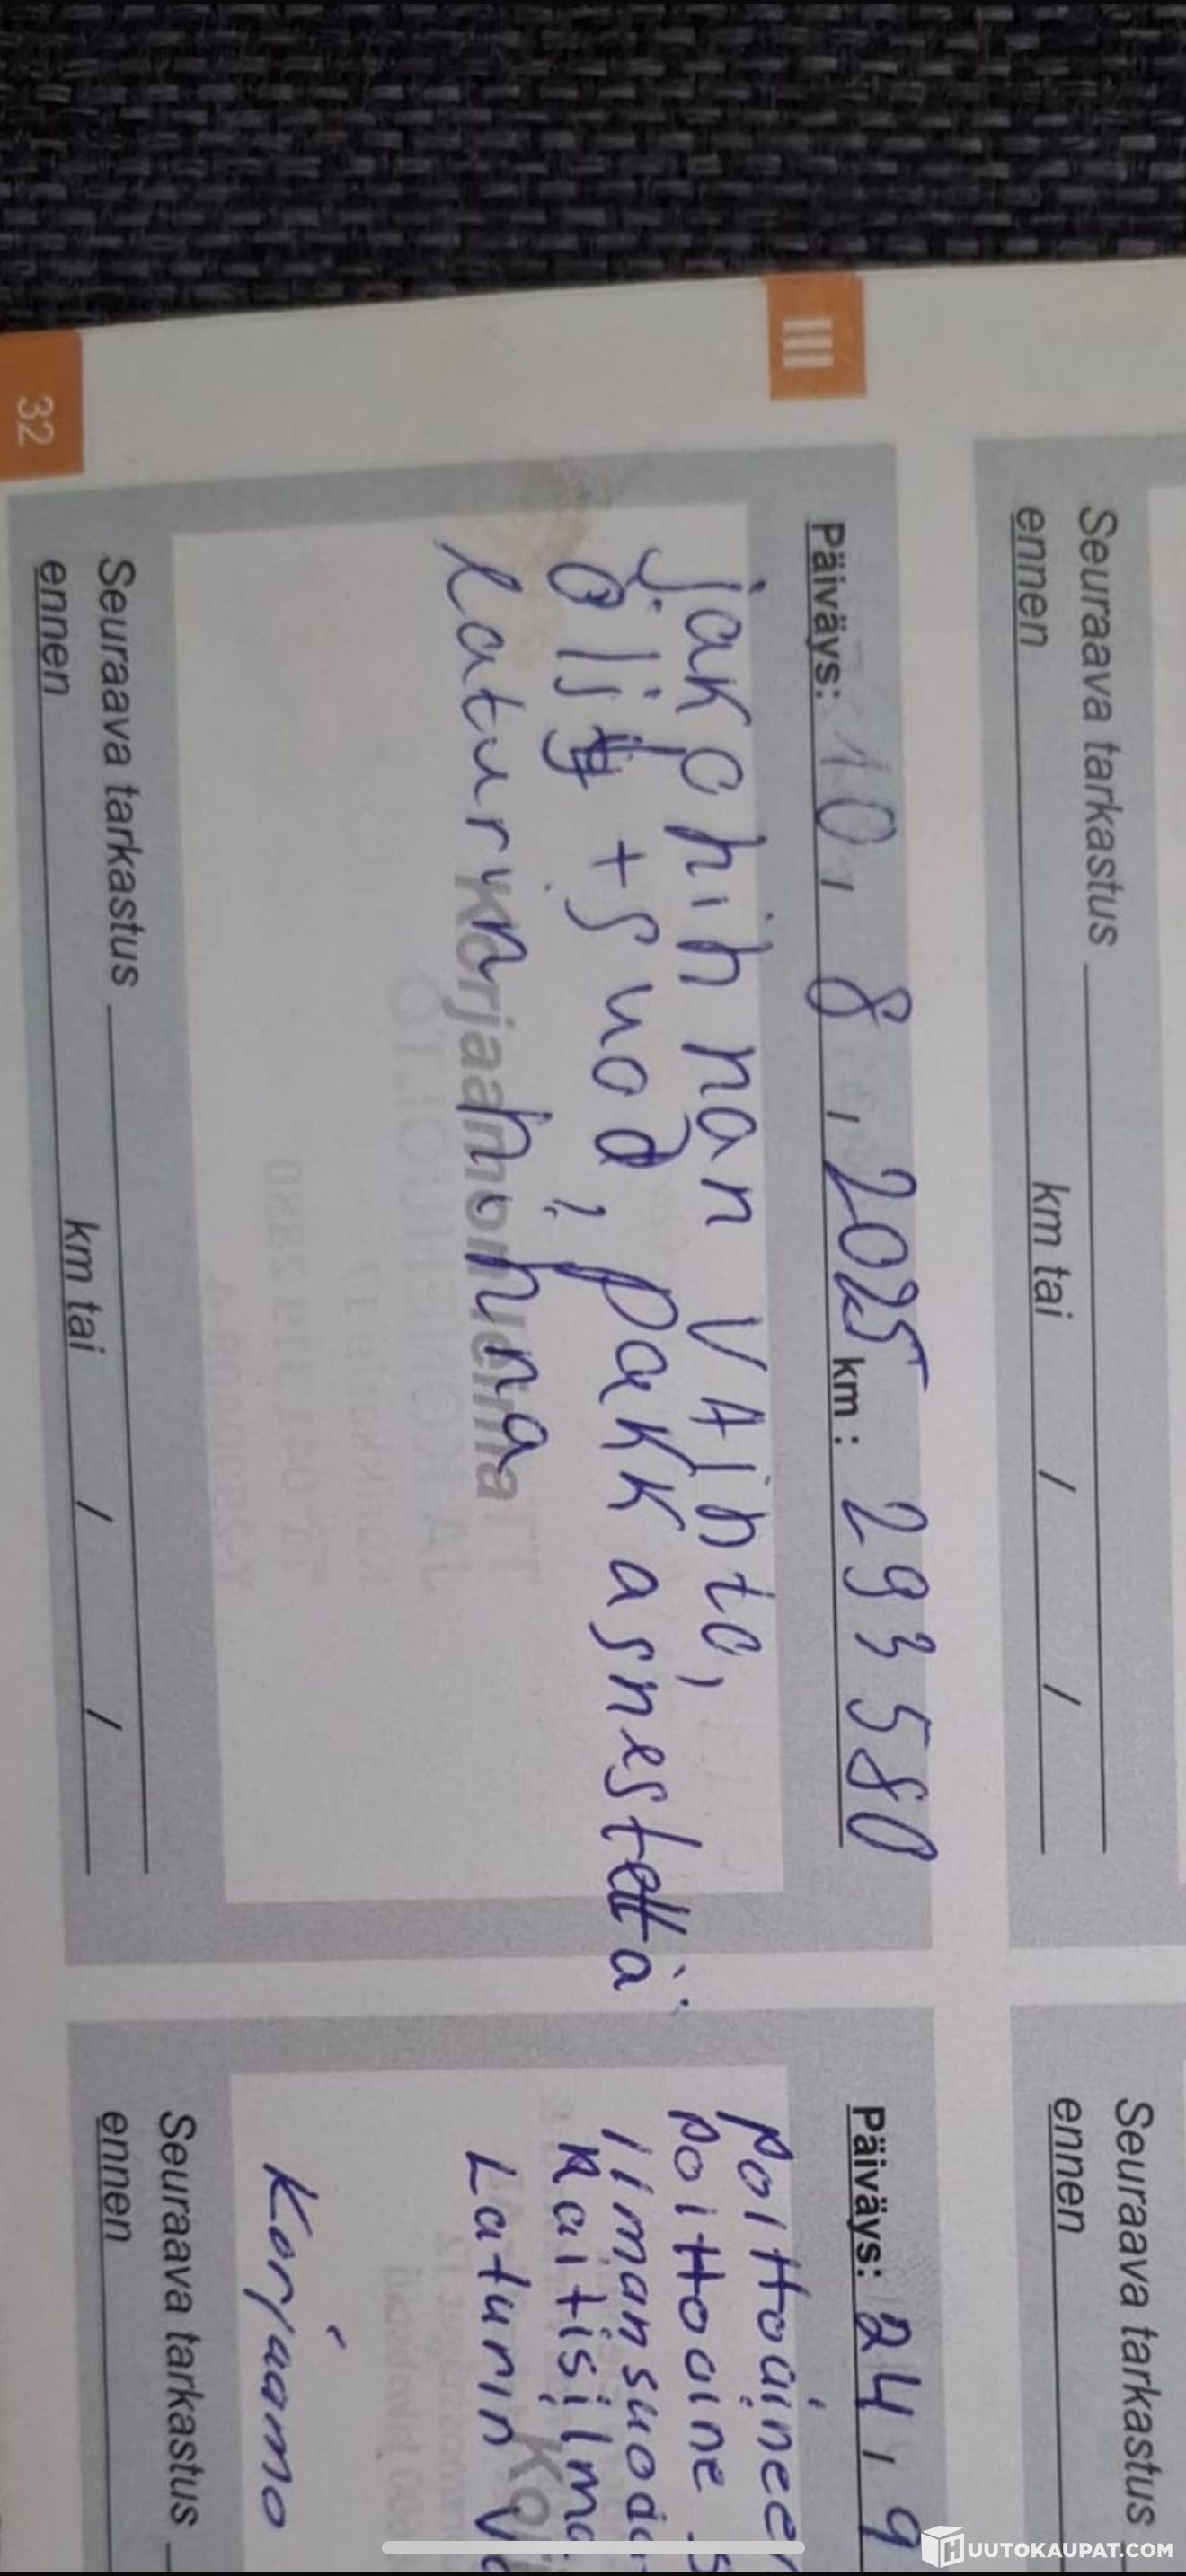 Seuraava tarkastus
ennen km tai / /
III
Päiväys: 10, 8, 2025 km: 293580
jakohihnan VAihto,
öljy + suod, pakkasnestettä
Laturin hihna
Korjaamon leima
Seuraava tarkastus
ennen km tai / /
32
Seuraava tarkastus
ennen
Päiväys: 24, 9
polttoainee
polttoaine s
ilmansuoda
Raitisilma
Laturin
Korjaamo
Seuraava tarkastus
ennen
HUUTOKAUPAT.COM